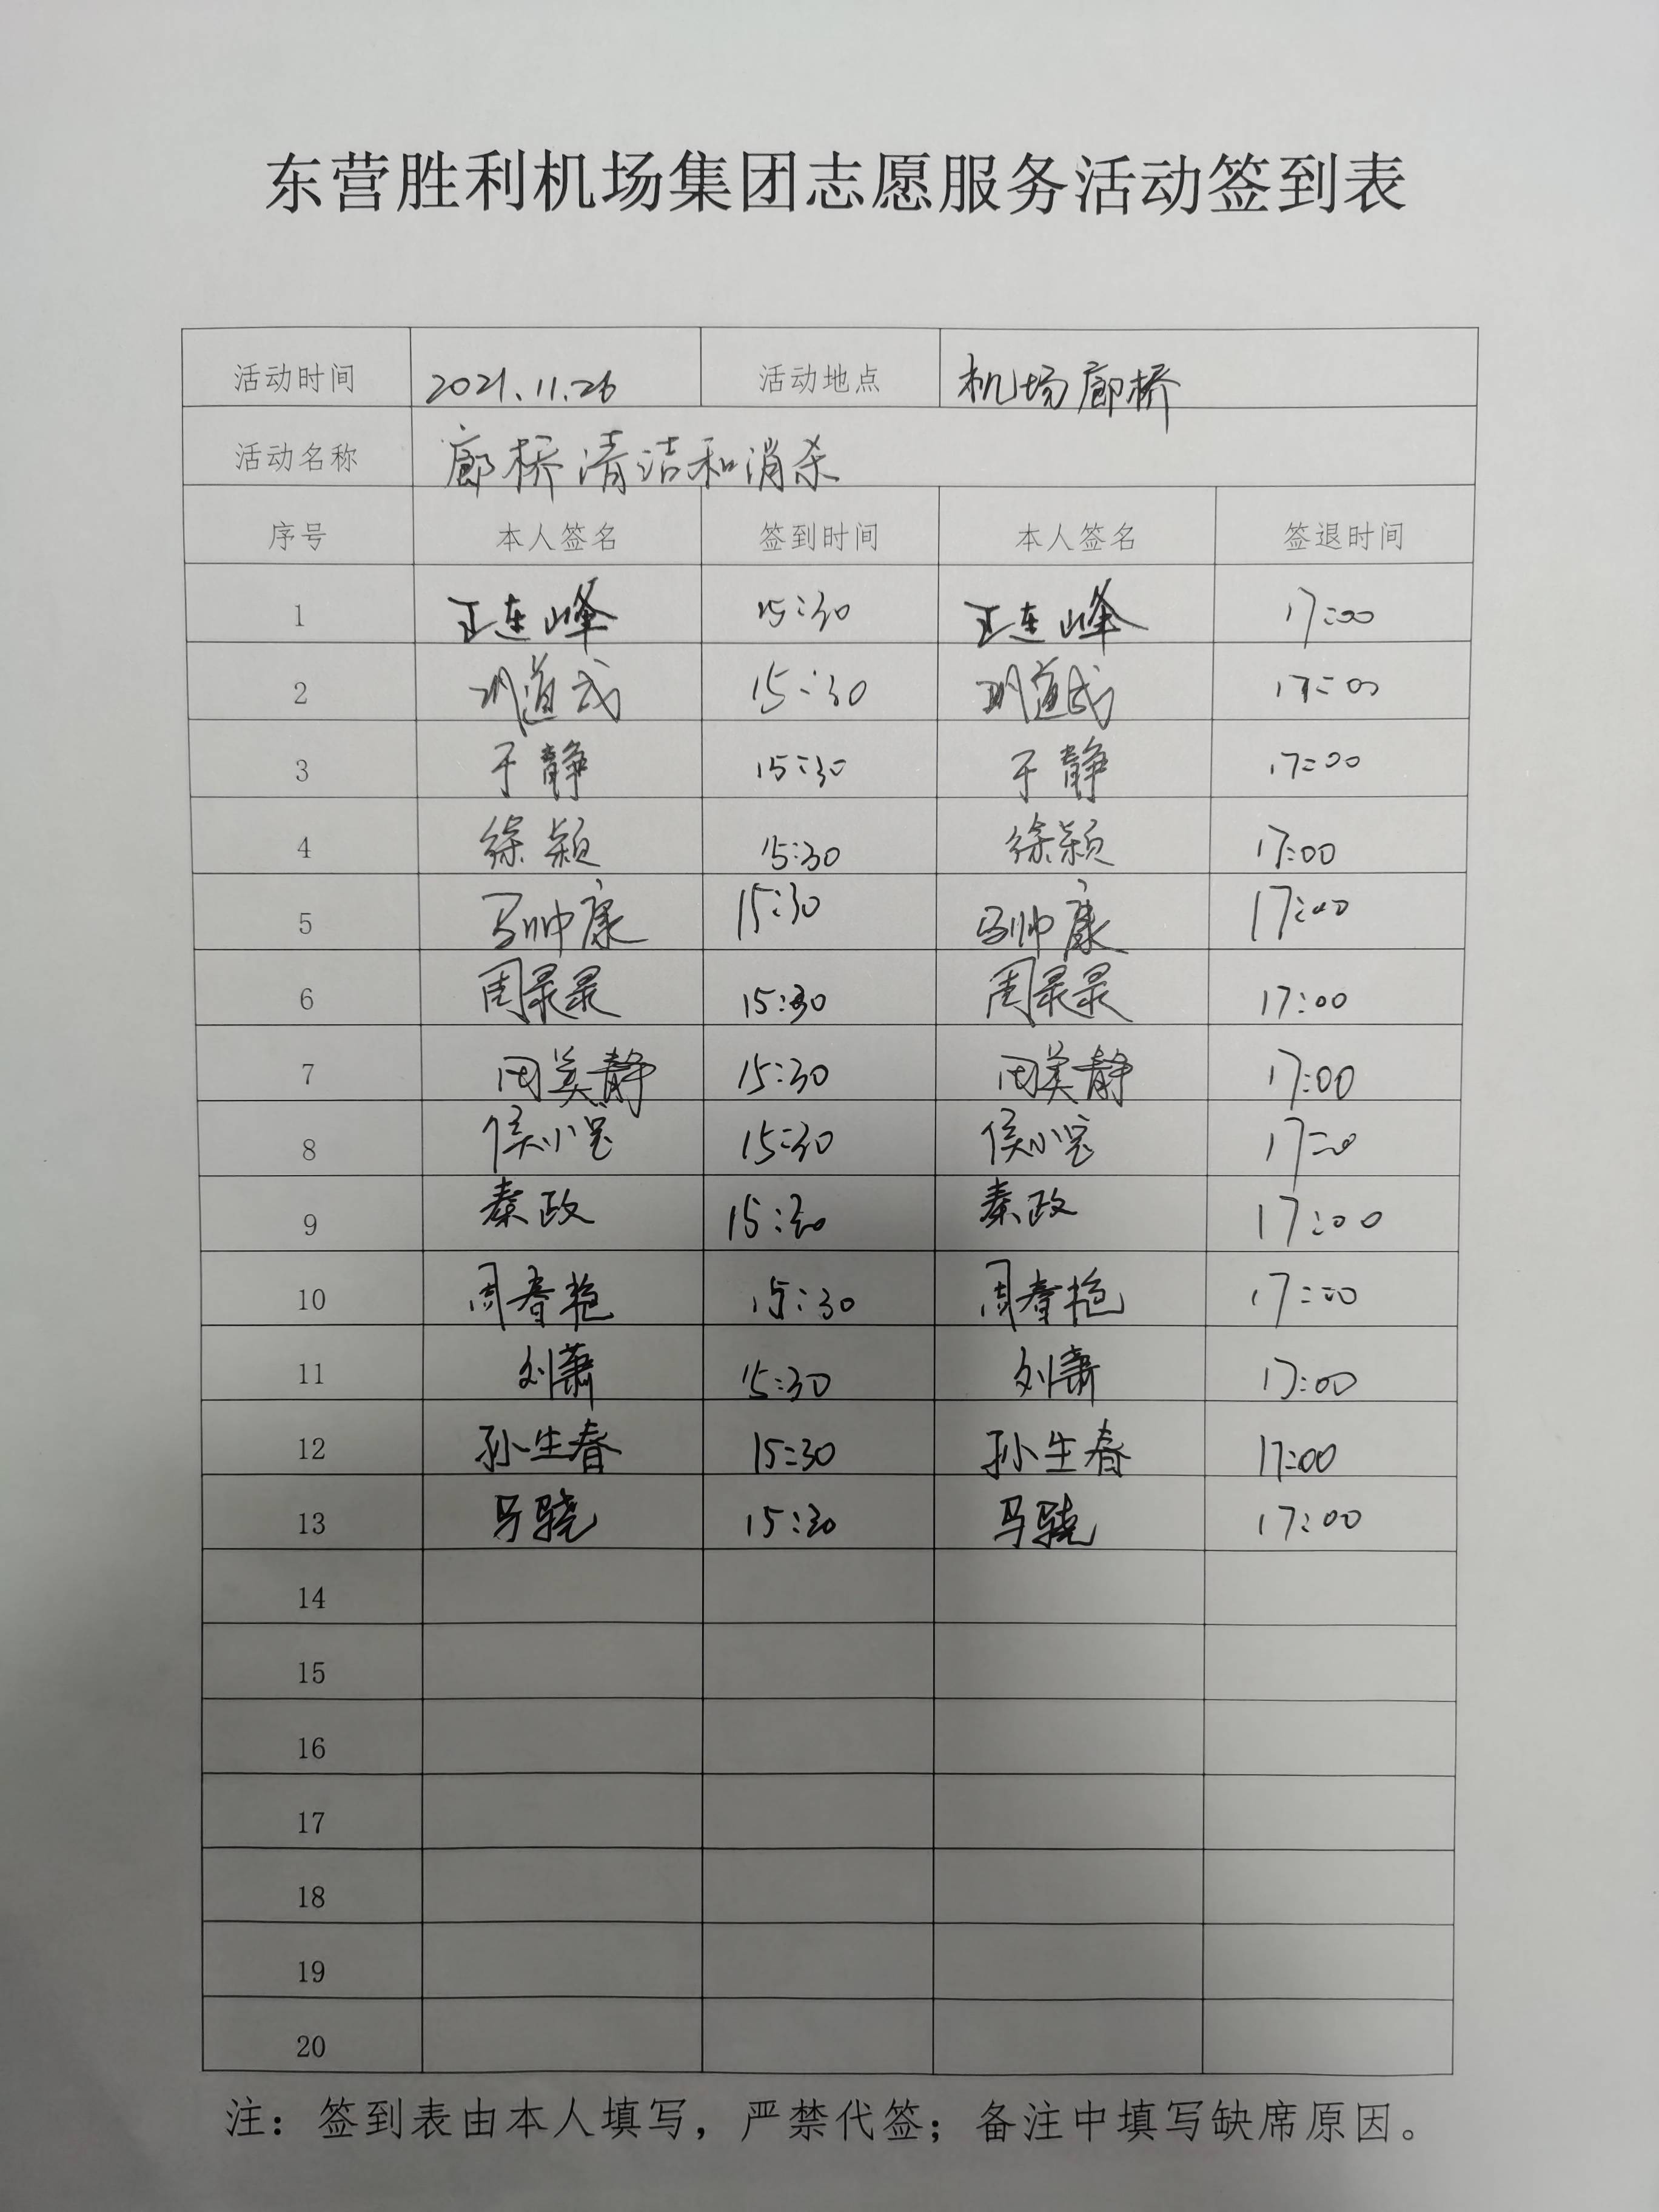 东营胜利机场集团志愿服务活动签到表
活动时间 2021.11.26 活动地点 机场廊桥
活动名称 廊桥清洁和消杀
序号 本人签名 签到时间 本人签名 签退时间
1 王连峰 15:30 王连峰 17:00
2 道武 15:30 道武 17:00
3 于静 15:30 于静 17:00
4 徐颖 15:30 徐颖 17:00
5 马帅康 15:30 马帅康 17:00
6 周录录 15:30 周录录 17:00
7 田美静 15:30 田美静 17:00
8 侯小宝 15:30 侯小宝 17:00
9 秦政 15:30 秦政 17:00
10 周春艳 15:30 周春艳 17:00
11 刘萧 15:30 刘萧 17:00
12 孙生春 15:30 孙生春 17:00
13 马骁 15:30 马骁 17:00
14
15
16
17
18
19
20
注：签到表由本人填写，严禁代签；备注中填写缺席原因。